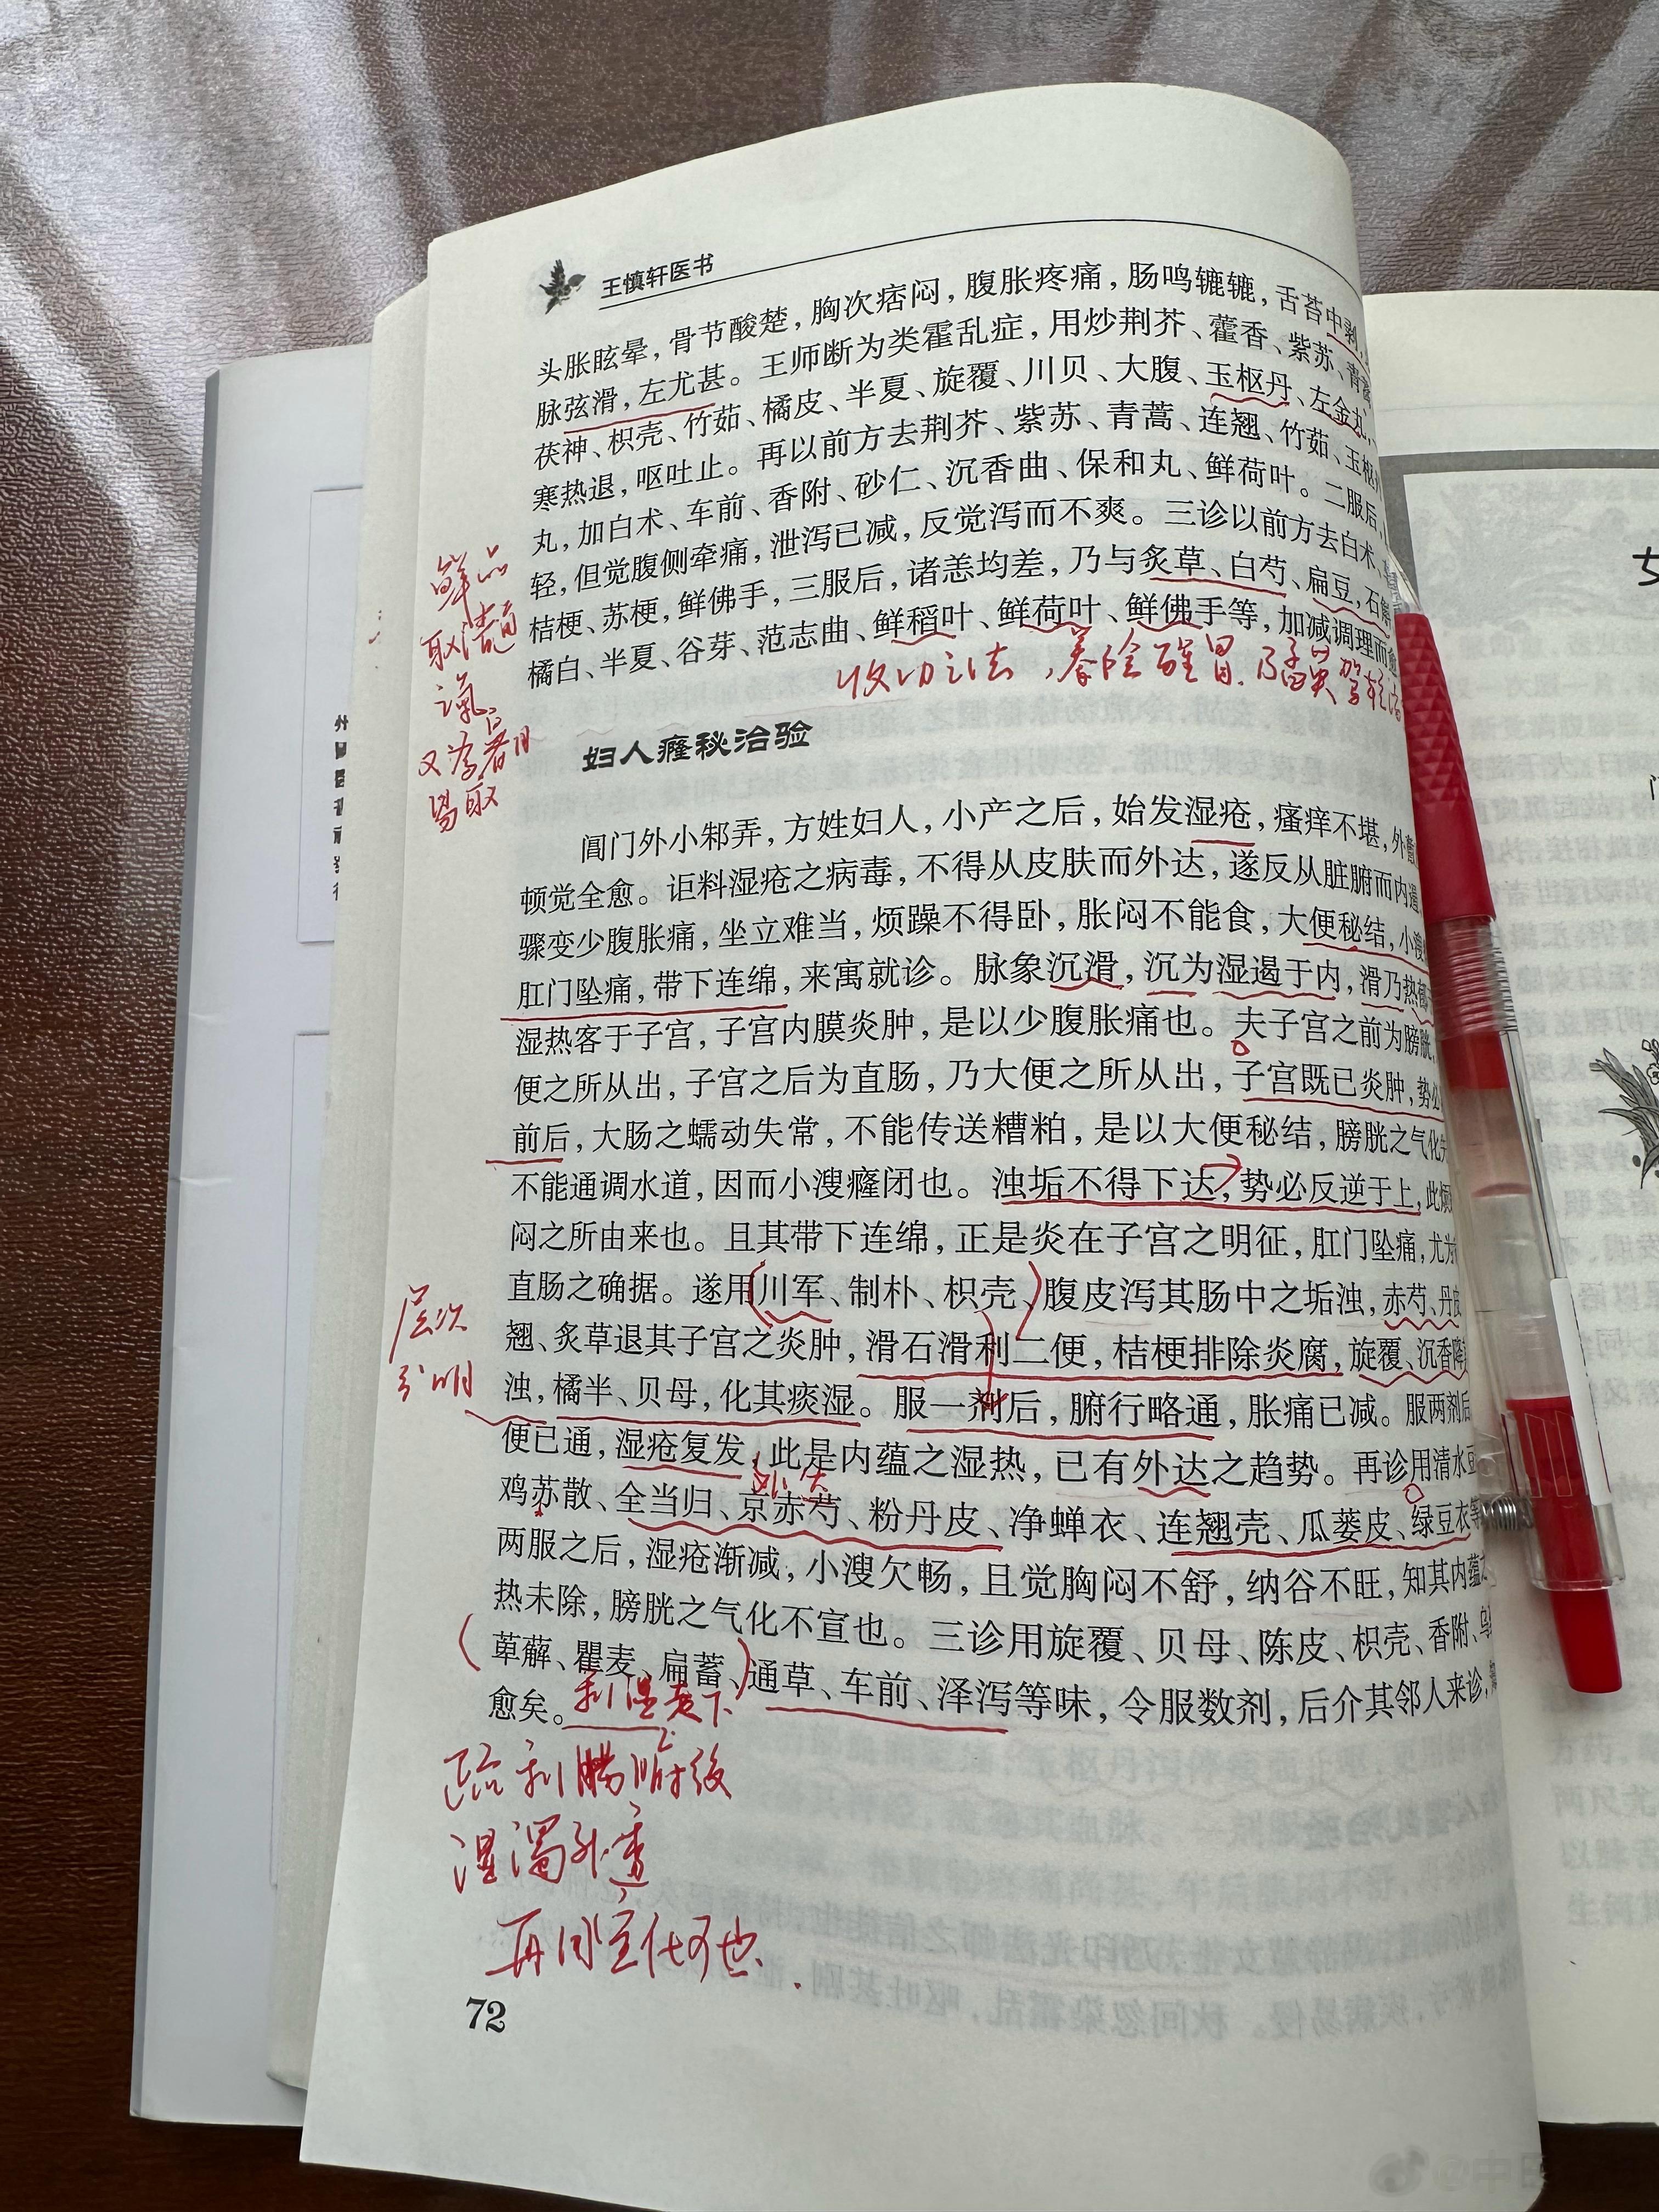 王慎轩医书
头胀眩晕，骨节酸楚，胸次痞闷，腹胀疼痛，肠鸣辘辘，舌苔中剥，
脉弦滑，左尤甚。王师断为类霍乱症，用炒荆芥、藿香、紫苏、青蒿、
茯神、枳壳、竹茹、橘皮、半夏、旋覆、川贝、大腹、玉枢丹、左金丸，
寒热退，呕吐止。再以前方去荆芥、紫苏、青蒿、连翘、竹茹、玉枢
丸，加白术、车前、香附、砂仁、沉香曲、保和丸、鲜荷叶。二服后，
轻，但觉腹侧牵痛，泄泻已减，反觉泻而不爽。三诊以前方去白术、
桔梗、苏梗，鲜佛手，三服后，诸恙均差，乃与炙草、白芍、扁豆，石斛
橘白、半夏、谷芽、范志曲、鲜稻叶、鲜荷叶、鲜佛手等，加减调理而愈
鲜品
取清
又为暑月
易取
收功之法，养阴醒胃
妇人癃秘治验
阊门外小邾弄，方姓妇人，小产之后，始发湿疮，瘙痒不堪，外敷
顿觉全愈。讵料湿疮之病毒，不得从皮肤而外达，遂反从脏腑而内遏
骤变少腹胀痛，坐立难当，烦躁不得卧，胀闷不能食，大便秘结，小溲
肛门坠痛，带下连绵，来寓就诊。脉象沉滑，沉为湿遏于内，滑乃热郁
湿热客于子宫，子宫内膜炎肿，是以少腹胀痛也。夫子宫之前为膀胱，
便之所从出，子宫之后为直肠，乃大便之所从出，子宫既已炎肿，势必
前后，大肠之蠕动失常，不能传送糟粕，是以大便秘结，膀胱之气化失
不能通调水道，因而小溲癃闭也。浊垢不得下达，势必反逆于上，此烦
闷之所由来也。且其带下连绵，正是炎在子宫之明征，肛门坠痛，尤为
直肠之确据。遂用川军、制朴、枳壳、腹皮泻其肠中之垢浊，赤芍、丹皮
翘、炙草退其子宫之炎肿，滑石滑利二便，桔梗排除炎腐，旋覆、沉香降
浊，橘半、贝母，化其痰湿。服一剂后，腑行略通，胀痛已减。服两剂后
便已通，湿疮复发，此是内蕴之湿热，已有外达之趋势。再诊用清水豆
外达
鸡苏散、全当归、京赤芍、粉丹皮、净蝉衣、连翘壳、瓜蒌皮、绿豆衣等
两服之后，湿疮渐减，小溲欠畅，且觉胸闷不舒，纳谷不旺，知其内蕴
热未除，膀胱之气化不宣也。三诊用旋覆、贝母、陈皮、枳壳、香附、乌
萆薢、瞿麦、扁蓄、通草、车前、泽泻等味，令服数剂，后介其邻人来诊，
愈矣。
利湿走下
层次
分明
利腑后
湿浊外
再用宣化可也
72